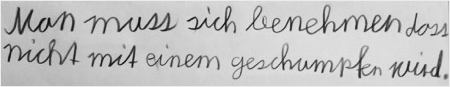 Man muss sich benehmen dass
nicht mit einem geschumpfen wird.